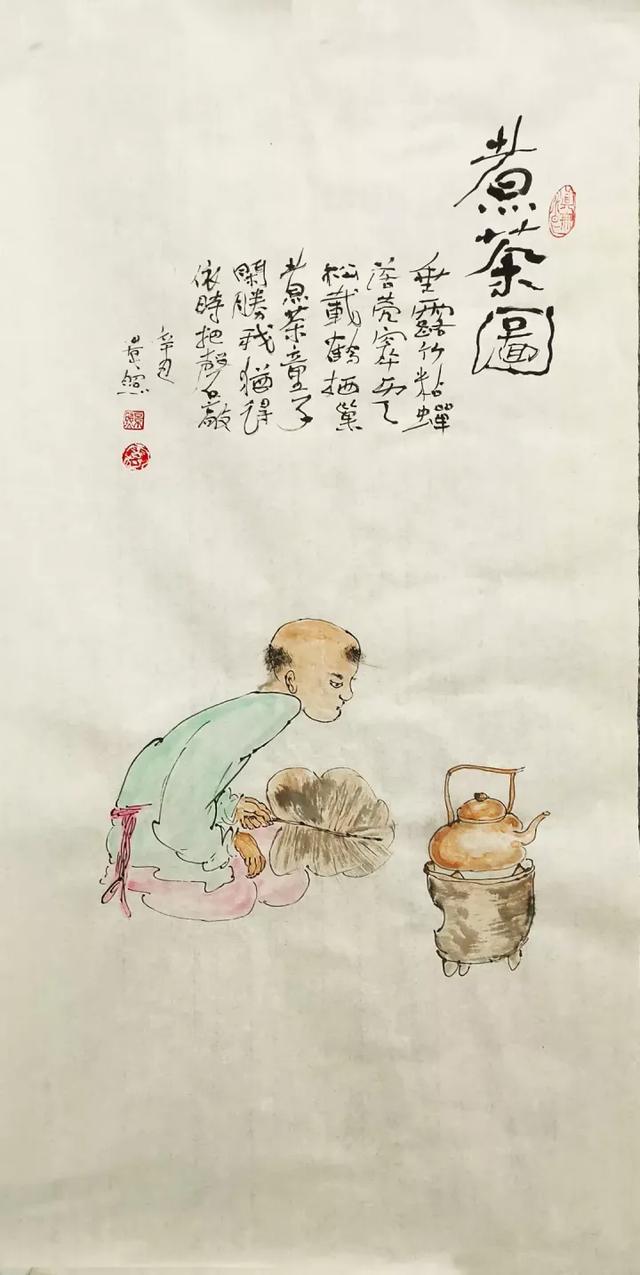 煮茶圖
垂露竹粘蟬
落壳窣云
松載鶴栖巢
煮茶童子
閑勝我猶得
依時把磬敲
辛丑
景